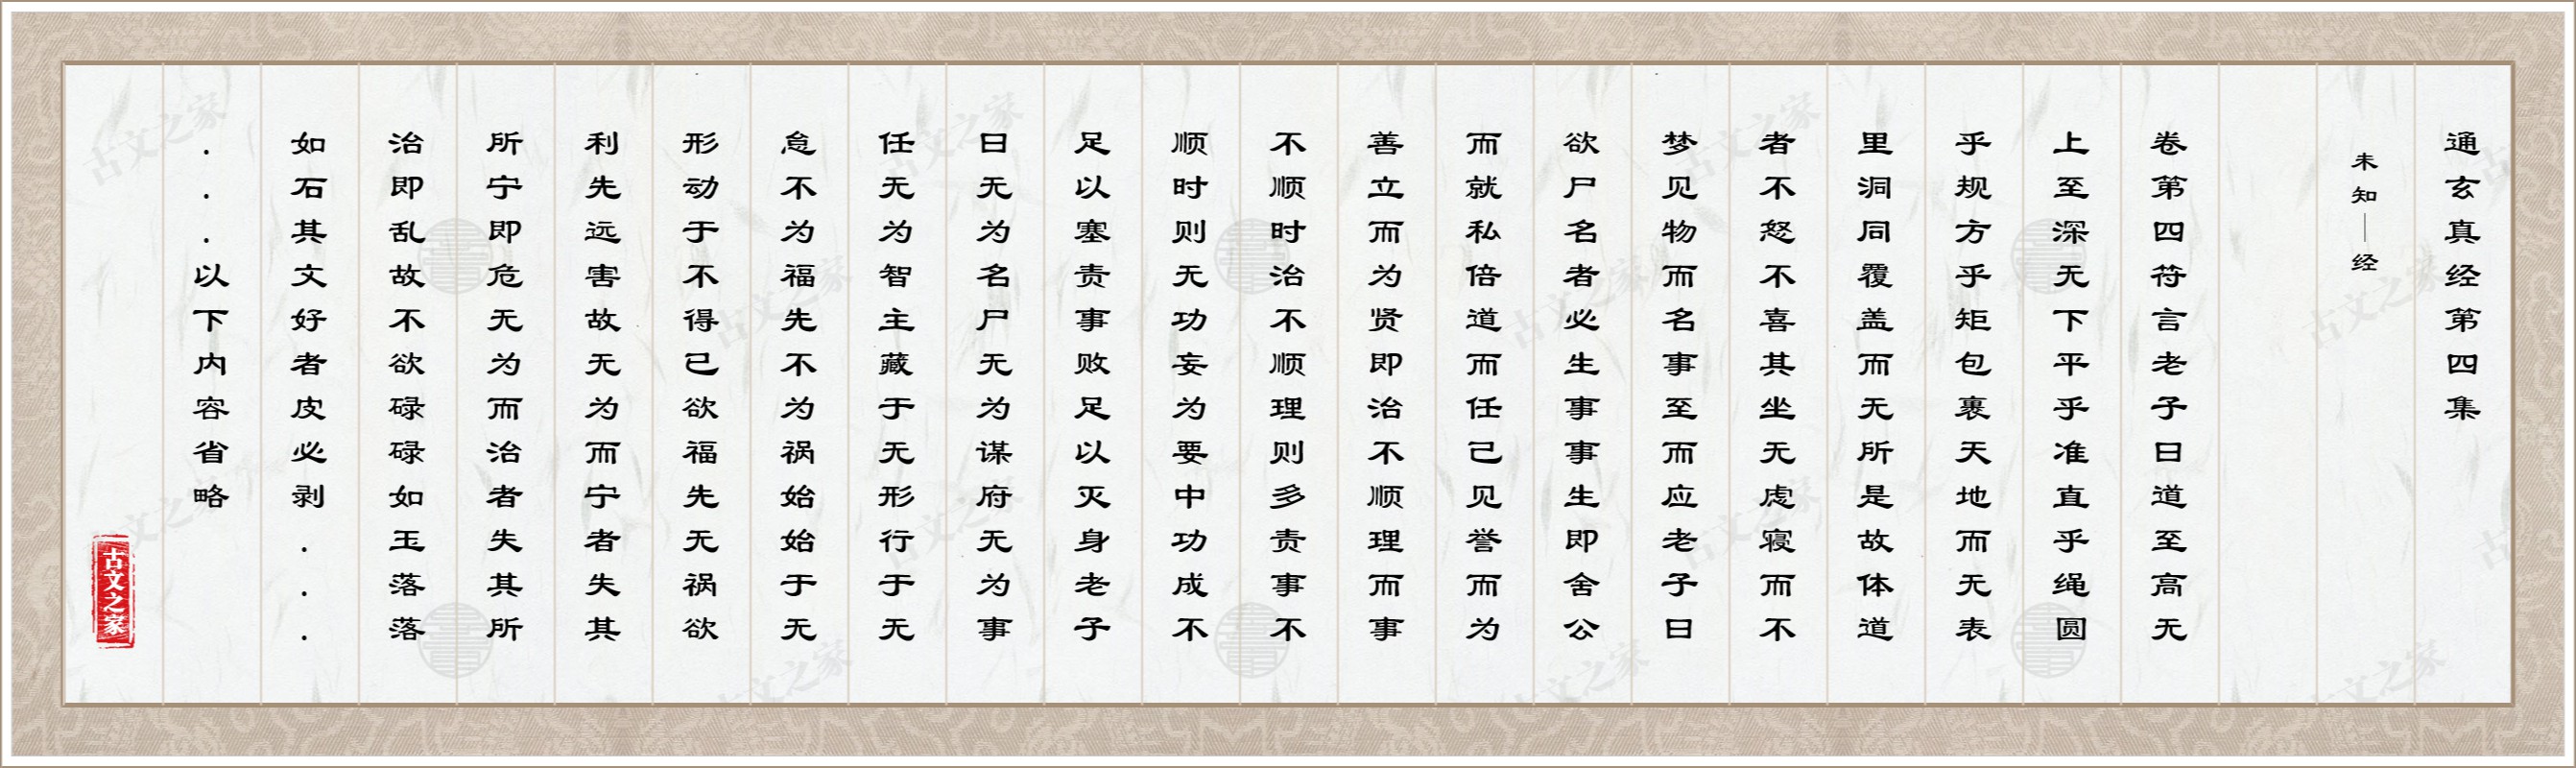 通玄真经第四集
未知｜经
卷第四符言老子曰道至高无
上至深无下平乎准直乎绳圆
乎规方乎矩包裹天地而无表
里洞同覆盖而无所是故体道
者不怒不喜其坐无虑寝而不
梦见物而名事至而应老子曰
欲尸名者必生事事生即舍公
而就私倍道而任己见誉而为
善立而为贤即治不顺理而事
不顺时治不顺理则多责事不
顺时则无功妄为要中功成不
足以塞责事败足以灭身老子
曰无为名尸无为谋府无为事
任无为智主藏于无形行于无
怠不为福先不为祸始始于无
形动于不得已欲福先无祸欲
利先远害故无为而宁者失其
所宁即危无为而治者失其所
治即乱故不欲碌碌如玉落落
如石其文好者皮必剥...
...以下内容省略
古文之家